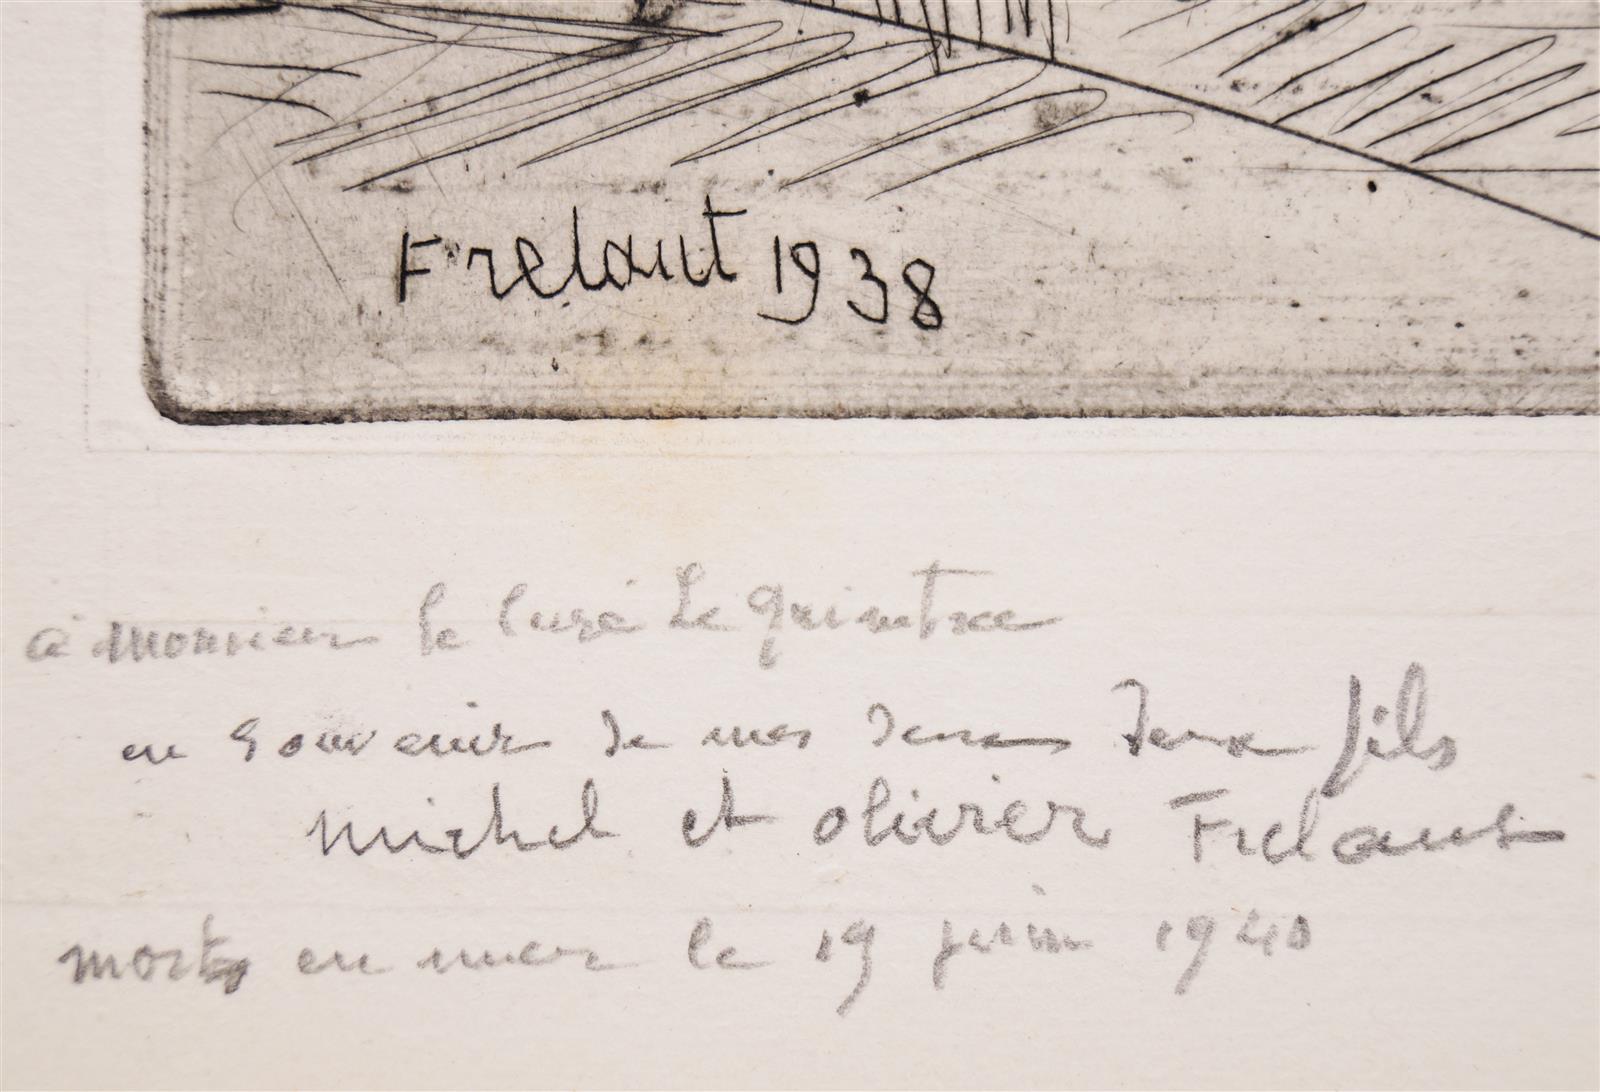 Frelaut 1938
à Monsieur le Curé Le Quintrec
en souvenir de mes deux deux fils
Michel et Olivier Frelaut
morts en mer le 19 juin 1940